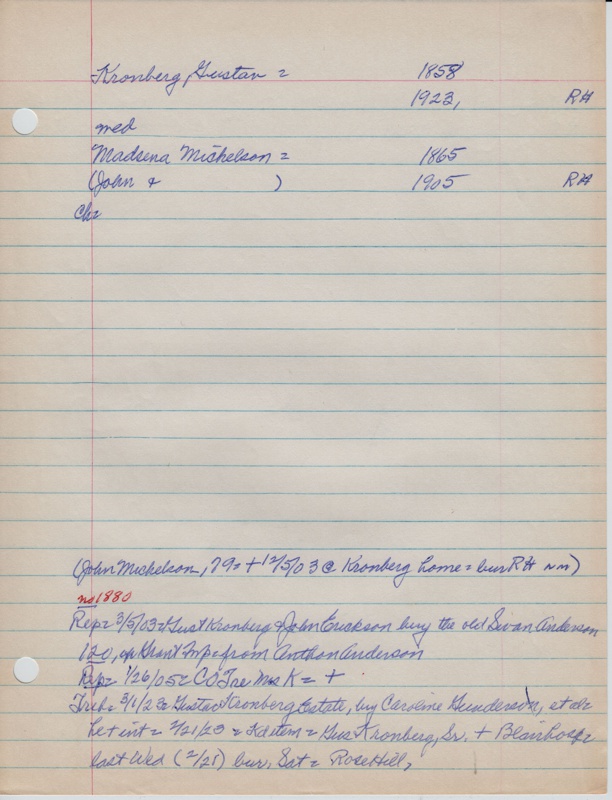 Kronberg, Gustav = 1858
1923, RH
med
Madsena Mickelson = 1865
(John & ) 1905 RH
Ch=
(John Mickelson, 79 = + 12/5/03 @ Kronberg home = bur RH nm)
no 1880
Rep = 3/5/03 = Gust Kronberg & John Erickson buy the old Swan Anderson
120, Grant Twp from Anthon Anderson
Rep = 1/26/05 = CO Tre Mrs K = +
Treb = 3/1/23 = Gustav Kronberg Estate, by Caroline Gunderson, et al =
Let int = 2/21/23 = item = Gus Kronberg, Sr. + Blair Hosp =
last Wed (2/21) bur. Sat = Rose Hill,